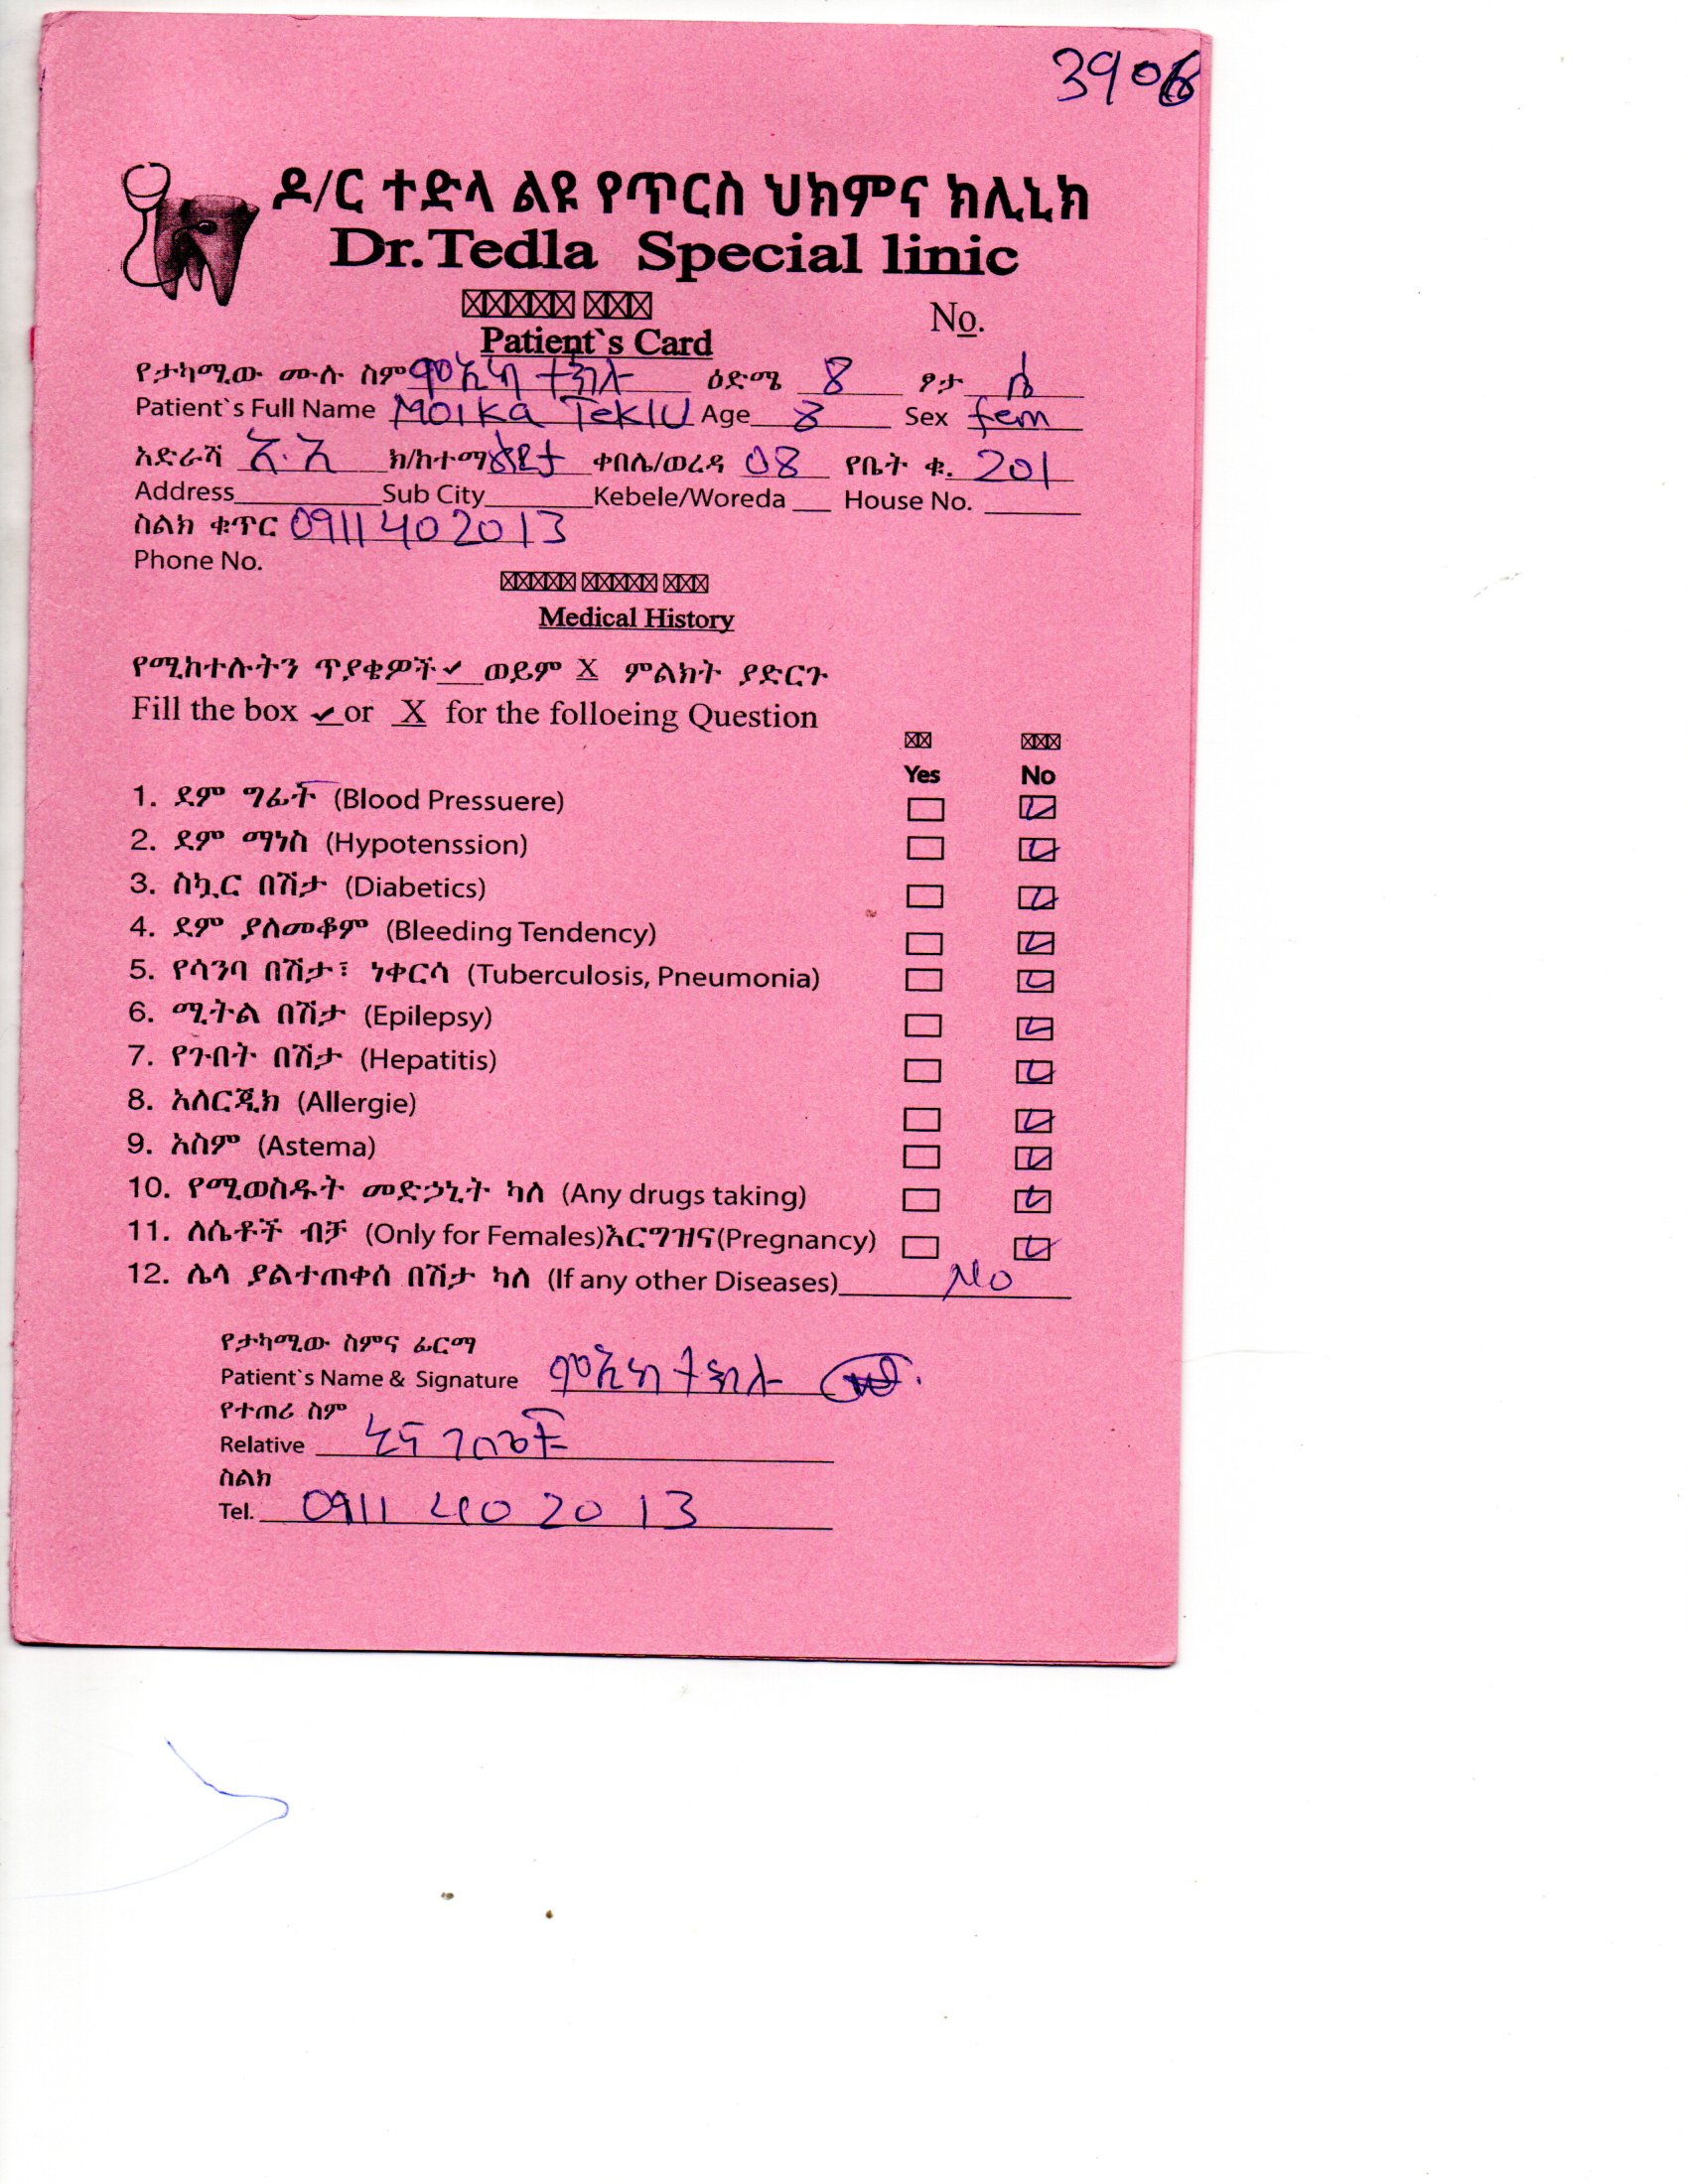 3906
ዶ/ር ተድላ ልዩ የጥርስ ህክምና ክሊኒክ
Dr.Tedla Special linic
No.
Patient`s Card
የታካሚው ሙሉ ስም ሞኢካ ተክሉ ዕድሜ 8 ፆታ ሴ
Patient`s Full Name Moika Teklu Age 8 Sex fem
አድራሻ አ.አ ክ/ከተማ ቀበሌ/ወረዳ 08 የቤት ቁ. 201
Address Sub City Kebele/Woreda House No.
ስልክ ቁጥር 0911402013
Phone No.
Medical History
የሚከተሉትን ጥያቄዎች ✓ ወይም X ምልክት ያድርጉ
Fill the box ✓ or X for the folloeing Question
Yes No
1. ደም ግፊት (Blood Pressuere)
2. ደም ማነስ (Hypotenssion)
3. ስኳር በሽታ (Diabetics)
4. ደም ያለመቆም (Bleeding Tendency)
5. የሳንባ በሽታ፣ ነቀርሳ (Tuberculosis, Pneumonia)
6. ሚትል በሽታ (Epilepsy)
7. የጉበት በሽታ (Hepatitis)
8. አለርጂክ (Allergie)
9. አስም (Astema)
10. የሚወስዱት መድኃኒት ካለ (Any drugs taking)
11. ለሴቶች ብቻ (Only for Females)እርግዝና(Pregnancy)
12. ሌላ ያልተጠቀሰ በሽታ ካለ (If any other Diseases) No
የታካሚው ስምና ፊርማ
Patient`s Name & Signature ሞኢካ ተክሉ
የተጠሪ ስም
Relative
ስልክ
Tel. 0911 40 20 13